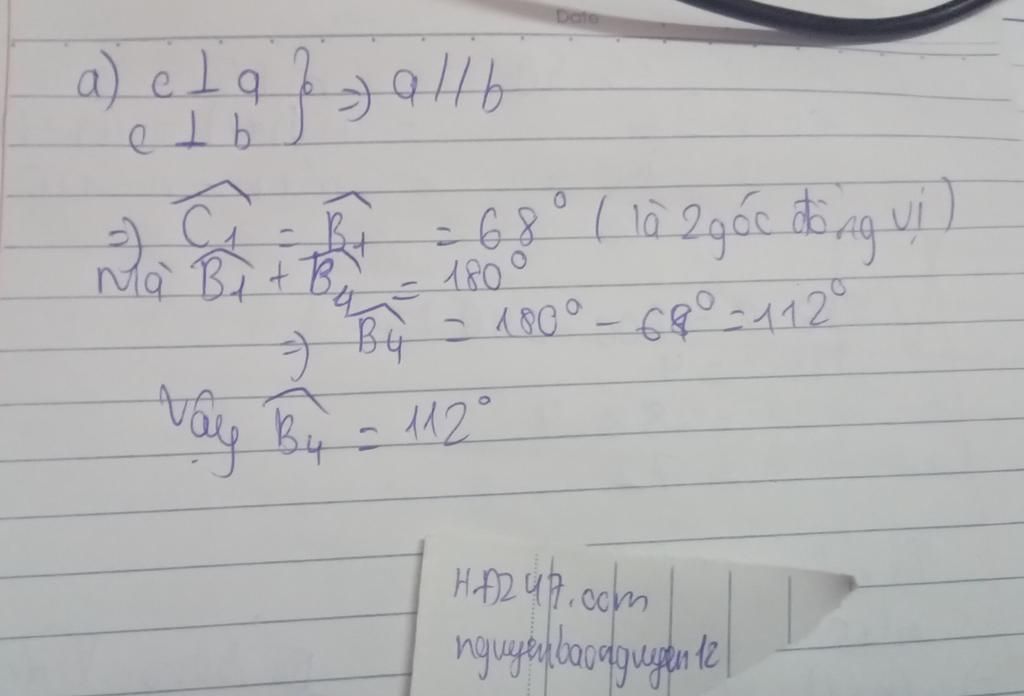 Date
a) c ⊥ a } ⇒ a // b
c ⊥ b
⇒ Ĉ1 = B̂1 = 68° (là 2 góc đồng vị)
Mà B̂1 + B̂4 = 180°
⇒ B̂4 = 180° - 68° = 112°
Vậy B̂4 = 112°
HD247.com
nguyenbaonguyen12